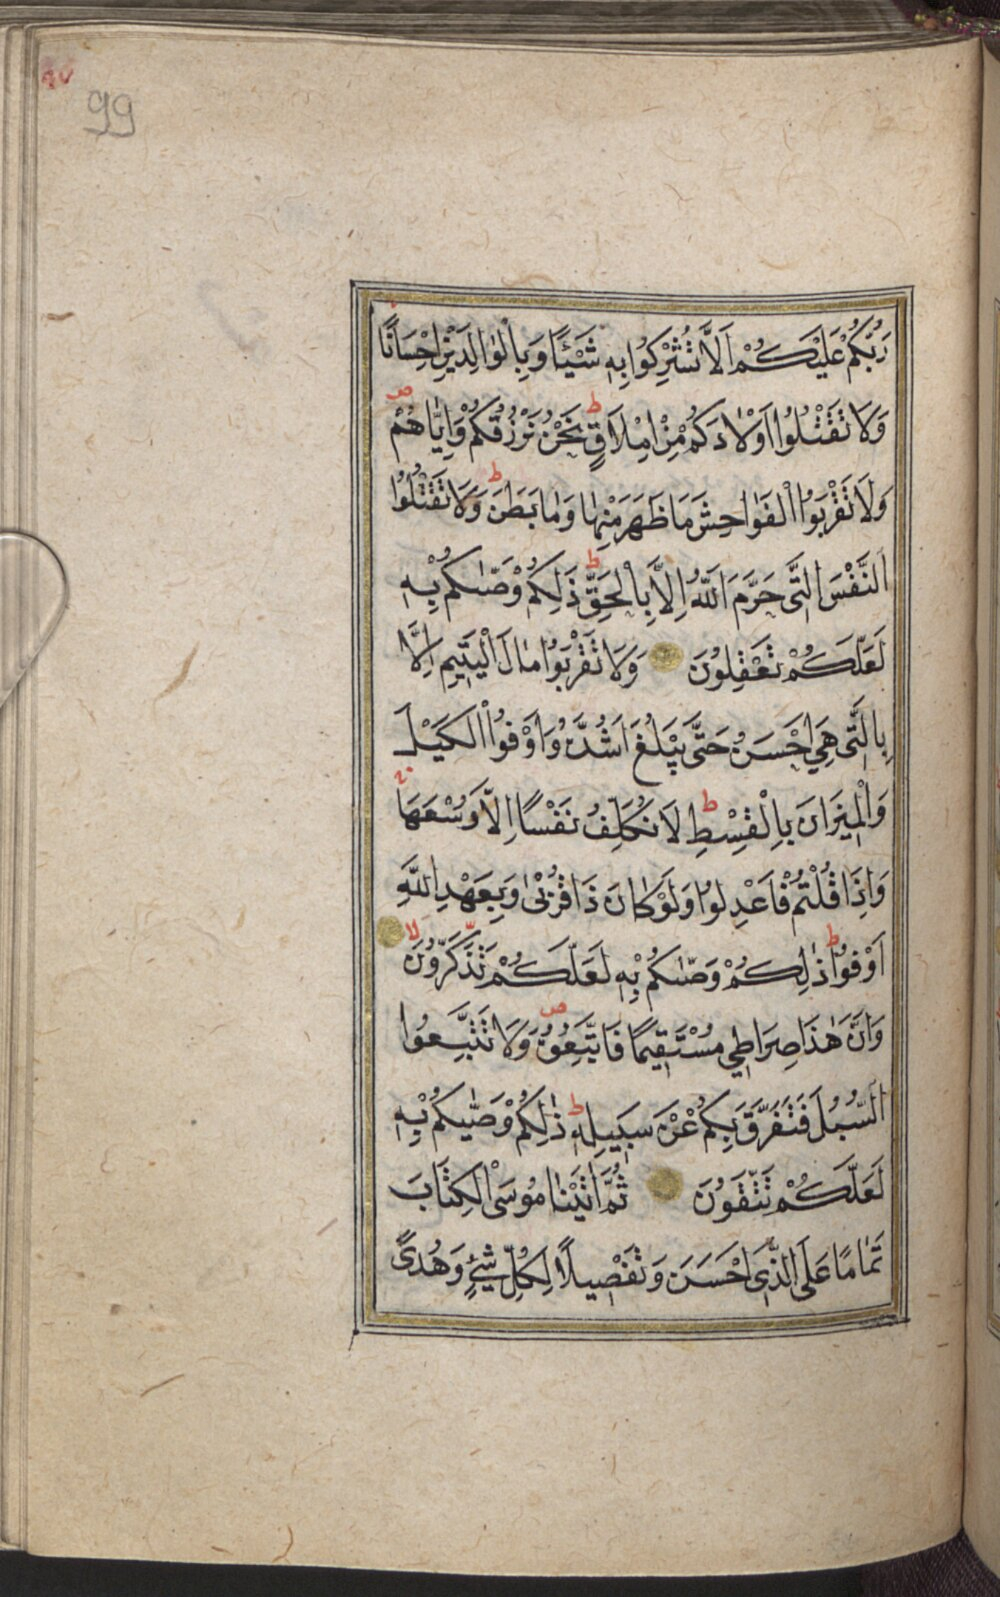 99
رَبُّكُمْ عَلَيْكُمْ اَلَّا تُشْرِكُوا بِهِ شَيْـًٔا وَبِالْوَالِدَيْنِ اِحْسَانًا
وَلَا تَقْتُلُوا اَوْلَادَكُمْ مِنْ اِمْلَاقٍ ط نَحْنُ نَرْزُقُكُمْ وَاِيَّاهُمْ ص
وَلَا تَقْرَبُوا الْفَوَاحِشَ مَا ظَهَرَ مِنْهَا وَمَا بَطَنَ ط وَلَا تَقْتُلُوا
النَّفْسَ الَّتِى حَرَّمَ اللّٰهُ اِلَّا بِالْحَقِّ ط ذٰلِكُمْ وَصّٰيكُمْ بِهِ
لَعَلَّكُمْ تَعْقِلُونَ وَلَا تَقْرَبُوا مَالَ الْيَتِيمِ اِلَّا
بِالَّتِى هِيَ اَحْسَنُ حَتَّى يَبْلُغَ اَشُدَّهُ وَاَوْفُوا الْكَيْلَ
وَالْمِيزَانَ بِالْقِسْطِ ط لَا نُكَلِّفُ نَفْسًا اِلَّا وُسْعَهَا
وَاِذَا قُلْتُمْ فَاعْدِلُوا وَلَوْ كَانَ ذَا قُرْبٰى وَبِعَهْدِ اللّٰهِ
اَوْفُوا ط ذٰلِكُمْ وَصّٰيكُمْ بِهِ لَعَلَّكُمْ تَذَكَّرُونَ لا
وَاَنَّ هٰذَا صِرَاطِي مُسْتَقِيمًا فَاتَّبِعُوهُ ص وَلَا تَتَّبِعُوا
السُّبُلَ فَتَفَرَّقَ بِكُمْ عَنْ سَبِيلِهِ ط ذٰلِكُمْ وَصّٰيكُمْ بِهِ
لَعَلَّكُمْ تَتَّقُونَ ثُمَّ اٰتَيْنَا مُوسَى الْكِتَابَ
تَمَامًا عَلَى الَّذِى اَحْسَنَ وَتَفْصِيلًا لِكُلِّ شَيْءٍ وَهُدًى